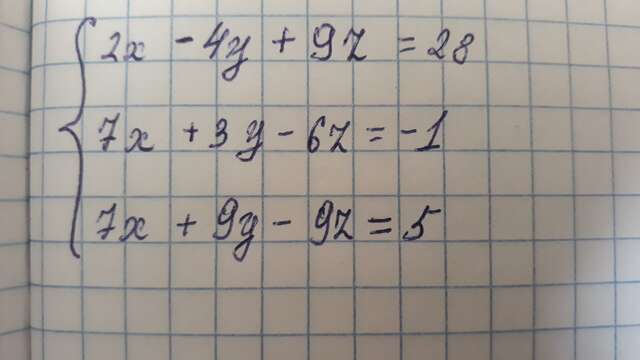 2x - 4y + 9z = 28
7x + 3y - 6z = -1
7x + 9y - 9z = 5